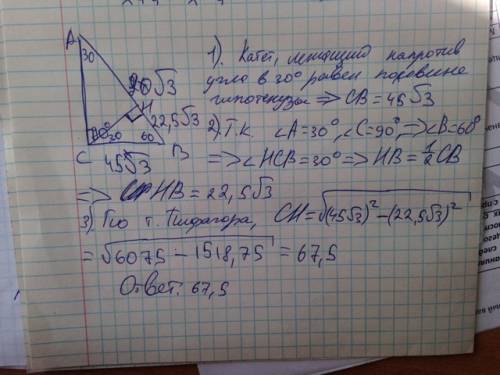 A
30
√3
H
22,5√3
30
60
C
B
45√3
1). Катет, лежащий напротив
угла в 30° равен половине
гипотенузы => CB = 45√3
2) Т.к. ∠A=30°, ∠C=90°, => ∠B=60°
=> ∠HCB=30° => HB=1/2 CB
=> HB = 22,5√3
3) По т. Пифагора, CH=√(45√3)²-(22,5√3)²
= √6075 - 1518,75 = 67,5
Ответ: 67,5